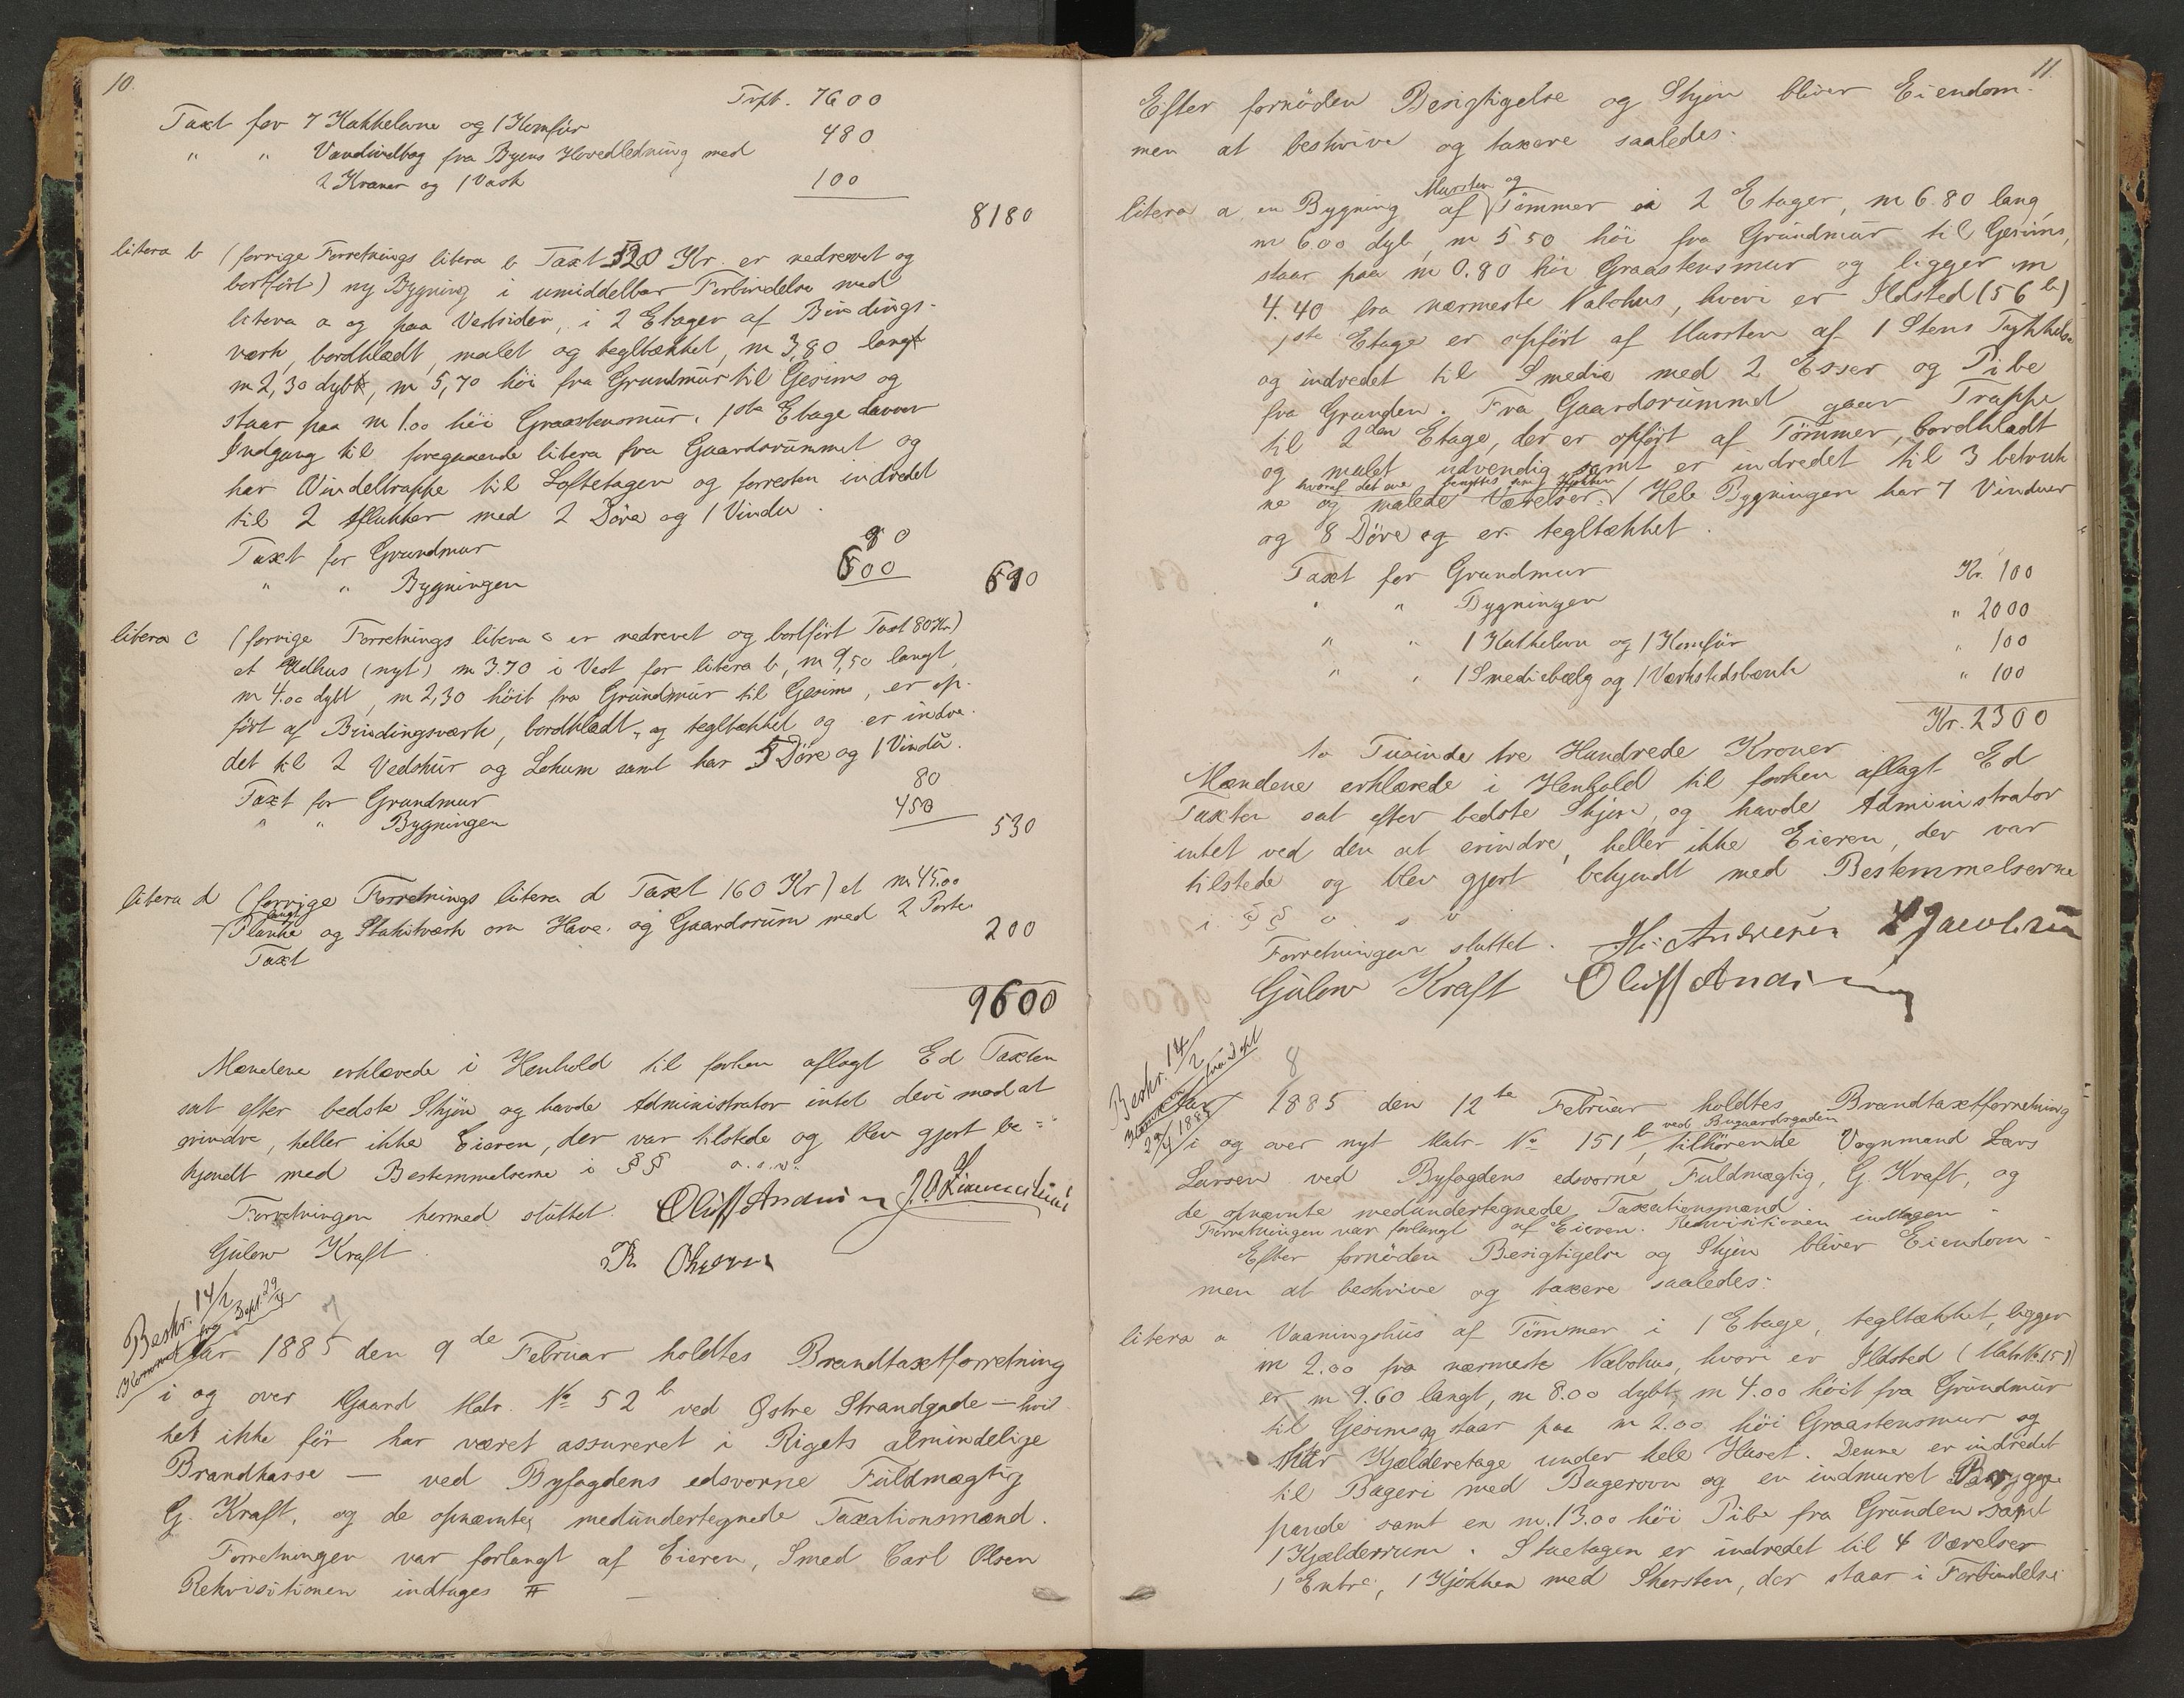 10.
Tvft. 7600
Taxt for 7 Kakkelovne og 1 Komfür 480
" " Vandindlæg fra Byens Hovedledning med
2 Kraner og 1 Vask 100
8180
litera b (forrige Forretnings litera b Taxt 520 Kr. er nedrevet og
bortført) ny Bygning i umiddelbar Forbindelse med
litera a og paa Vestsiden, i 2 Etager af Bindings-
værk, bordklædt, malet og tegltækket, m 3,80 lang
m 2,30 dyb, m 5,70 høi fra Grundmür til Gesims og
staar paa m 1.00 høi Graastensmür. 1ste Etage danner
Indgang til foregaaende litera fra Gaardsrümmet og
har Vindeltrappe til Loftetagen og forresten indredet
til 2 Aflukker med 2 Døre og 1 Vindu.
Taxt for Grundmur 90
" " Bygningen 600 690
litera c (forrige Forretnings litera c er nedrevet og bortført Taxt 80 Kr)
et Udhus (nyt) m 3.70 i Vest for litera b, m 9,50 langt,
m 4.00 dybt, m 2,30 høit fra Grundmür til Gesims, er op-
ført af Bindingsværk, bordklædt, og tegltækket og er indre-
det til 2 Vedskür og Lokum samt har 5 Døre og 1 Vindü.
Taxt for Grundmur 80
" " Bygningen 450 530
litera d (forrige Forretnings litera d Taxt 160 Kr) et m 45.00
langt
Planke og Stakitværk om Have- og Gaardsrüm med 2 Porte
Taxt 200
9600
Mændene erklærede i Henhold til forhen aflagt Ed Taxten
sat efter bedste Skjön og havde Administrator intet derimod at
erindre, heller ikke Eieren, der var tilstede og blev gjort be-
kjendt med Bestemmelserne i §§ o.s.v.
Forretningen hermed slüttet. Oluff Andersen
Gülow Kraft
Beskr. 14/2
Kommet fra Dept. 29/4
7
Aar 1885 den 9de Februar holdtes Brandtaxtforretning
i og over Gaard Matr. No 52b ved Østre Strandgade - hvil
ket ikke før har været assureret i Rigets almindelige
Brandkasse — ved Byfogdens edsvorne Füldmægtig
G. Kraft, og de opnævnte, medündertegnede Taxationsmænd.
Forretningen var forlangt af Eieren, Smed Carl Olsen
Rekvisitionen indtages #
11.
Efter fornöden Besigtigelse og Skjön bliver Eiendom-
men at beskrive og taxere saaledes:
Mursten og
litera a en Bygning af Tömmer i 2 Etager, m 6.80 lang,
m 6.00 dyb, m 5.50 höi fra Gründmür til Gesims,
staar paa m 0.80 höi Graastensmur og ligger m
4.40 fra nærmeste Nabohus, hvori er Ildsted (56b)
1ste Etage er opfört af Mursten af 1 Stens Tykkelse
og indredet til Smedie med 2 Esser og Pibe
fra Grunden. Fra Gaardsrümmet gaar Trappe
til 2den Etage, der er opfört af Tömmer, bordklædt
og malet udvendig samt er indredet til 3 betræk
hvoraf det ene benyttes som Kjökken
ne og malede Værelser. Hele Bygningen har 7 Vinduer
og 8 Döre og er tegltækket.
Taxt for Grundmur Kr. 100
" " Bygningen " 2000
" " 1 Kakkelovn og 1 Komfür " 100
" " 1 Smediebælg og 1 Værkstedsbænk " 100
Kr. 2300
To Tusinde tre Hundrede Kroner
Mændene erklærede i Henhold til forhen aflagt Ed
Taxten sat efter bedste Skjön, og havde Administrator
intet ved den at erindre, heller ikke Eieren, der var
tilstede og blev gjort bekjendt med Bestemmelserne
i §§ o. s. v.
Forretningen sluttet. Andersen Jacobsen
Gülow Kraft Oluff Andersen
Beskr. 14/2
Kommet fra Dept
29/4 1885
8
Aar 1885 den 12te Februar holdtes Brandtaxtforretning
ved Bugaardsgaden
i og over nyt Matr. No 151b, tilhörende Vognmand Lars
Larsen ved Byfogdens edsvorne Fuldmægtig, G. Kraft, og
de opnævnte medundertegnede Taxationsmænd.
Forretningen var forlangt af Eieren. Rekvisitionen indtages -
Efter fornöden Besigtigelse og Skjön bliver Eiendom-
men at beskrive og taxere saaledes:
litera a Vaaningshüs af Tömmer i 1 Etage, tegltækket, ligger
m 2.00 fra nærmeste Nabohus, hvori er Ildsted (Matr. No. 151)
er m 9.60 langt, m 8.00 dybt, m 4.00 höit fra Gründmür
til Gesims og staar paa m 2.00 höi Graastensmur og
har Kjælderetage under hele Huset. Denne er indredet
til Bageri med Bagerovn og en indmuret Brygge
pande samt en m. 13.00 höi Pibe fra Grunden samt
1 Kjælderrum. Stuetagen er indredet til 4 Værelser
1 Entre, 1 Kjökken med Skorsten, der staar i Forbindelse